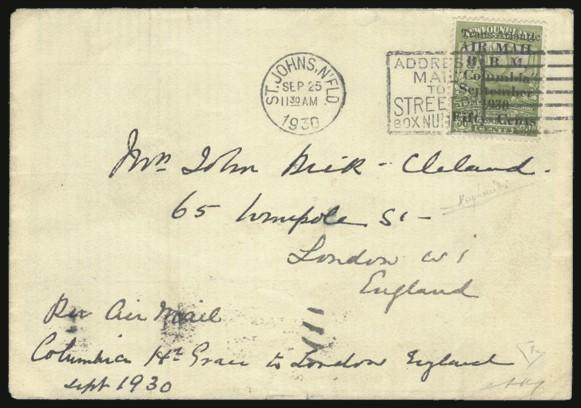 NEWFOUNDLAND
Trans-Atlantic
AIR MAIL
By B. M.
"Columbia"
September
1930
Fifty Cents
ST. JOHN'S, N'FLD
SEP 25
11 30 AM
1930
ADDRESS
MAIL
TO
STREET
BOX NU
Mrs John Dick-Cleland.
65 Wimpole St-
London W1
England
Per Air Mail
Columbia Hr Grace to London England
Sept 1930